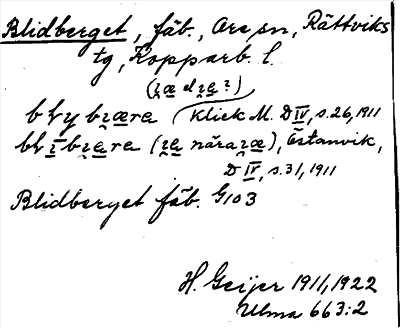 Blidberget, fäb., Ore sn, Rättviks
tg, Kopparb. l.
(ʒæ el ʒe?)
Klick M. D IV, s. 26, 1911
(ʒe nära ʒæ), Östanvik,
D IV, s. 31, 1911
Blidberget fäb. G103
H. Geijer 1911, 1922
Ulma 663:2